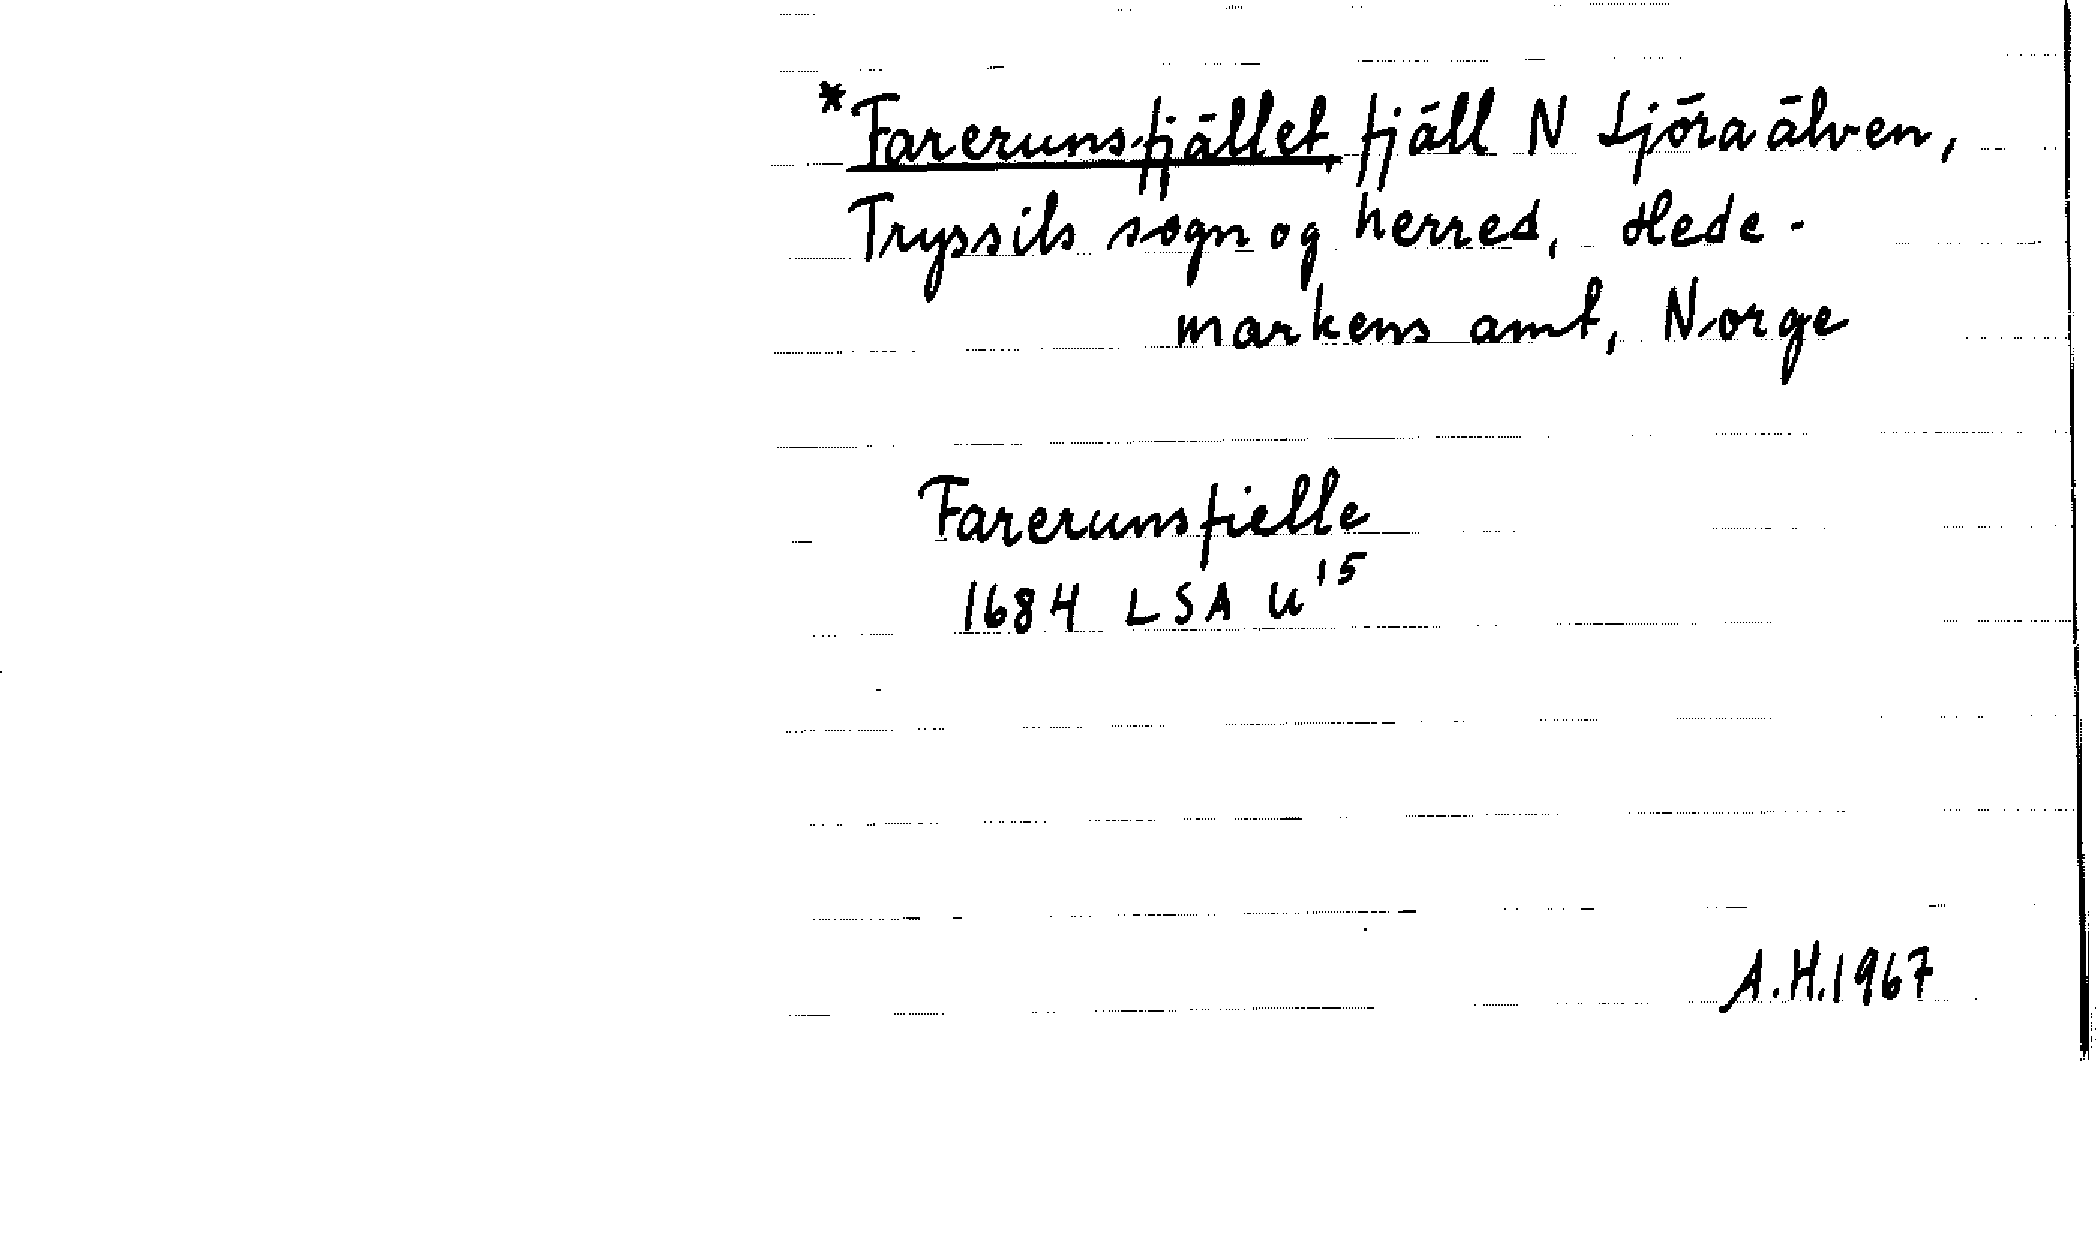 *Farerunsfjället, fjäll N Ljöraälven,
Tryssils sogn og herred, Hede-
markens amt, Norge
Farerunsfielle
1684 LSA U15
A.H.1967